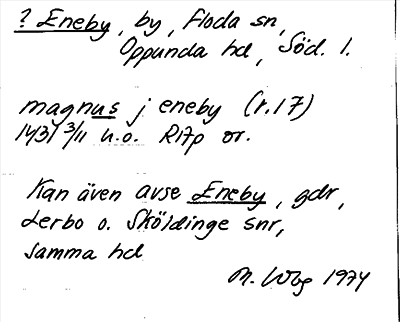 ? Eneby, by, Floda sn,
Oppunda hd, Söd. l.
magnus j eneby (r.17)
1431 3/11 u.o. RAp or.
Kan även avse Eneby, gdr,
Lerbo o. Sköldinge snr,
samma hd
M. Wbg 1974